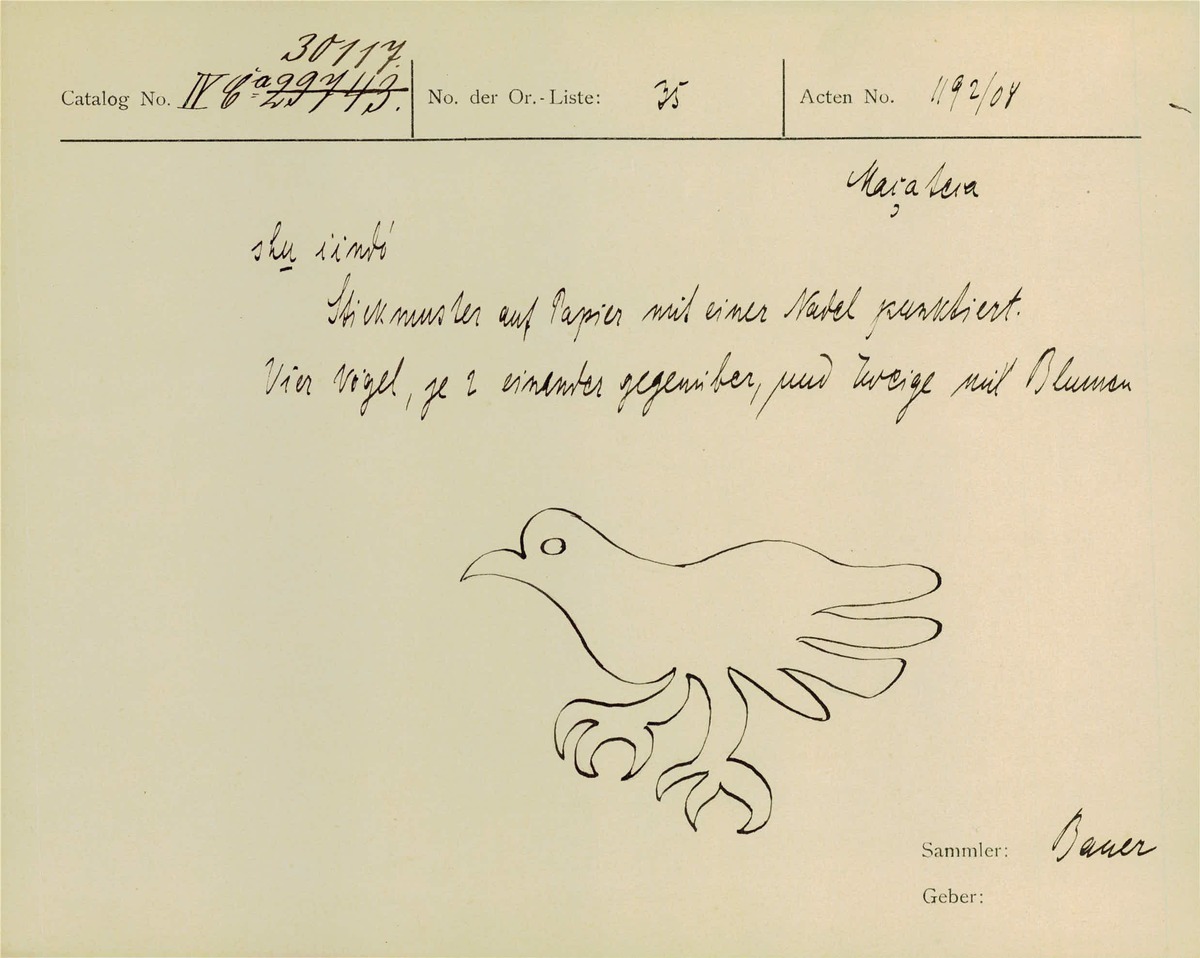 30117.
Catalog No. IV Ca 29743.
No. der Or.-Liste: 35
Acten No. 1192/08
Maçateca
shu iindó
Stickmuster auf Papier mit einer Nadel punktiert.
Vier Vögel, je 2 einander gegenüber, und Zweige mit Blumen
Sammler: Bauer
Geber: